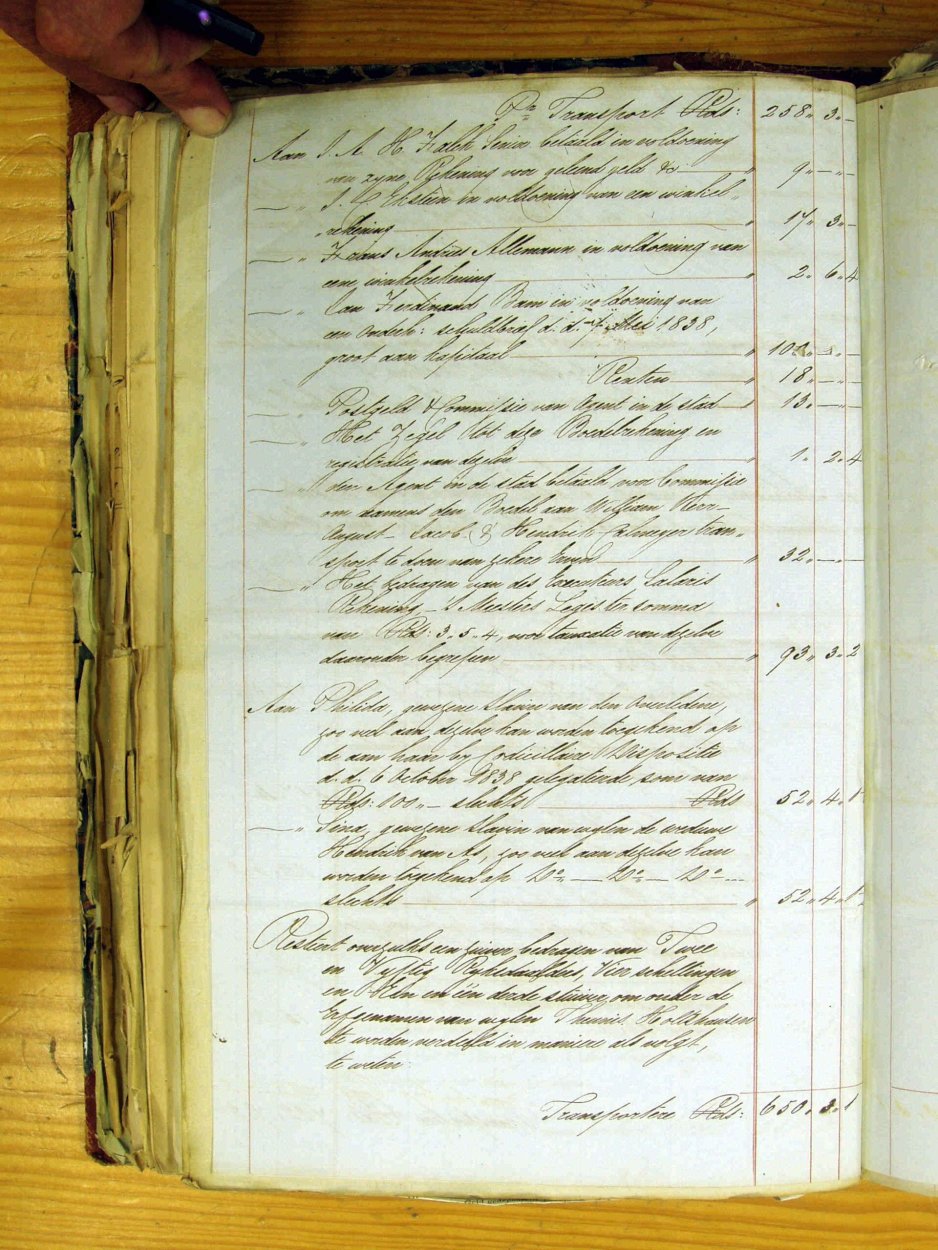 Pr Transport Rds: 258 „ 3 „ –
Aan J. A. H. Falck Senior betaald in voldoening
van zyne Rekening voor geleend geld &c — „ 9 „ – „ –
— „ J. C. Ekstein in voldoening van een winkel „
rekening — „ 17 „ 3 „ –
— „ Frans Andries Allemann in voldoening van
eene winkelrekening — „ 2 „ 6 „ 4
— „ Jan Ferdinand Bam in voldoening van
een onderh: schuldbrief d. d. 7 Mei 1838,
groot aan kapitaal — „ 100 „ – „ –
Renten — „ 18 „ – „ –
— „ Postgeld & Commissie van Agent in de stad — „ 13 „ – „ –
— „ Het Zegel tot deze Boedelrekening en
registratie van dezelve — „ 1 „ 2 „ 4
— „ den Agent in de stad betaald voor Commissie
om namens den Boedel aan William Kerr –
August – Jacob & Hendrik Esmeyer tran „
sport te doen van zekere — „ 32 „ – „ –
— „ Het bedragen van des Executeurs Salaris
Rekening – 's Meesters Leges ter somma
van Rds: 3 „ 5 „ 4, voor taxatie van dezelve
daaronder begrepen — „ 93 „ 3 „ 2
Aan Philida, gewezene slavin van den Overledene,
zoo veel aan dezelve kan worden toegekend op
de aan haar by Codicillaire Dispositie
d. d. 6 October 1838 gelegateerde som van
Rds: 100 „ – slechts — Rds 52 „ 4 „ 1
— „ Sena, gewezene slavin van wylen de weduwe
Hendrik van As, zoo veel aan dezelve kan
worden toegekend op Do — Do — Do —
slechts — „ 52 „ 4 „ 1
Resteert overzulks een zuiver bedragen van Twee
en Vyftig Ryksdaalders, Vier schellingen
en Een en één derde stuiver, om onder de
Erfgenamen van wylen Thunis Holtshausen
te worden verdeeld in maniere als volgt,
te weten:
Transportere Rds: 650 „ 3 „ 1